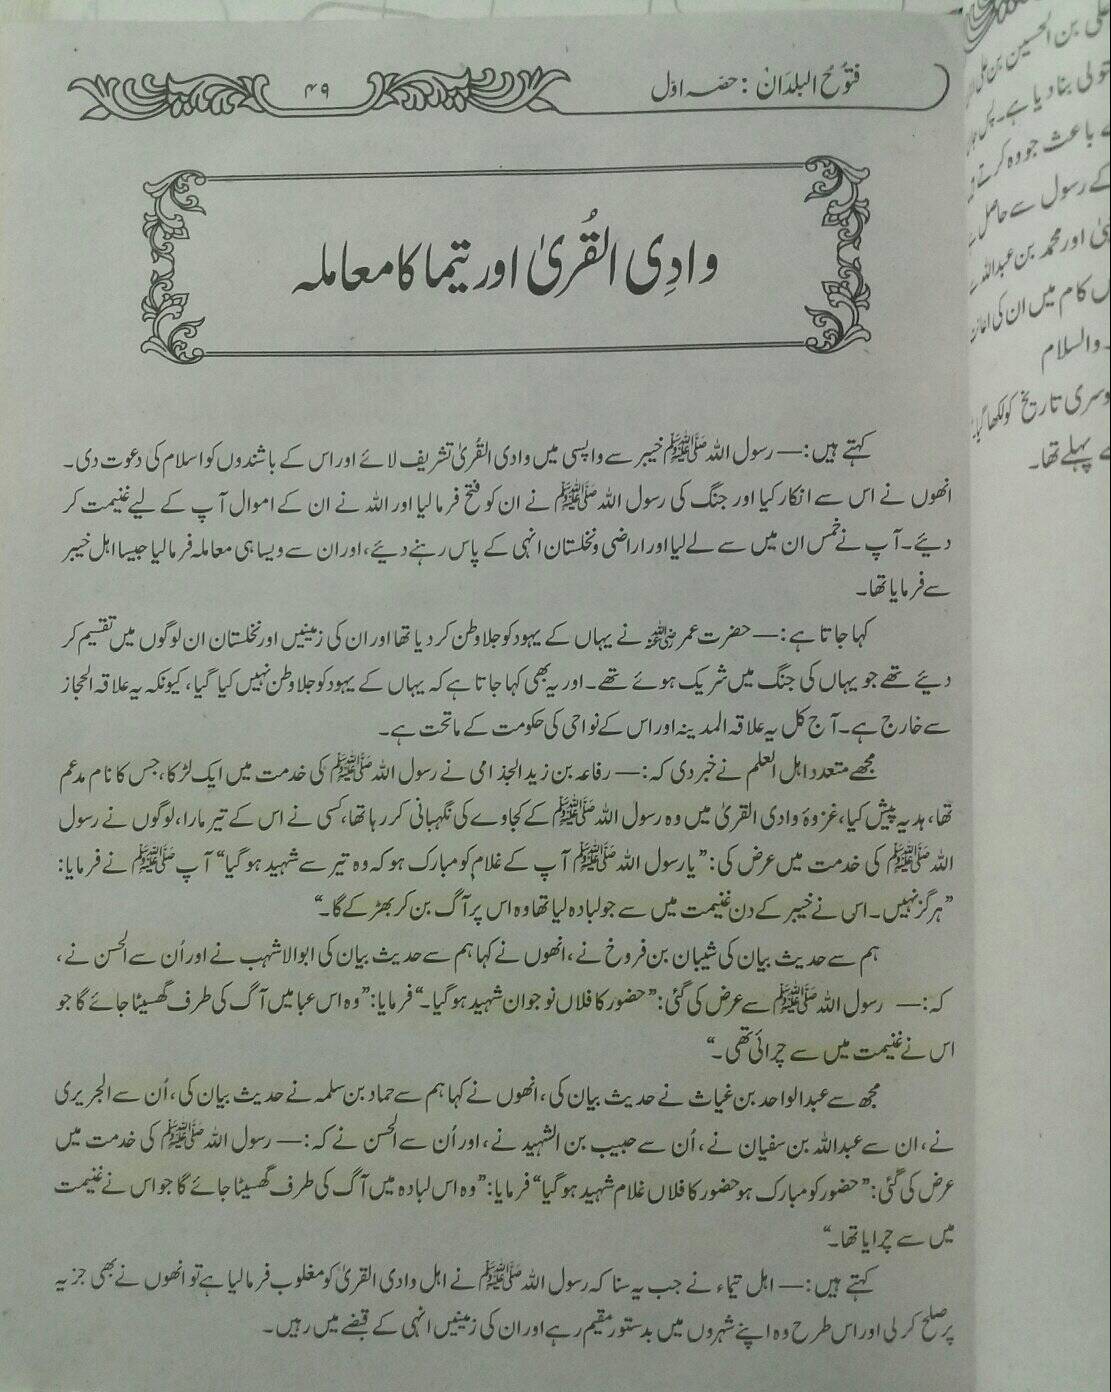 فتوحُ البلدان : حصہ اوّل
۴۹
وادِی القُریٰ اور تیما کا معاملہ
کہتے ہیں:— رسول اللہ ﷺ خیبر سے واپسی میں وادی القُریٰ تشریف لائے اور اس کے باشندوں کو اسلام کی دعوت دی۔
انھوں نے اس سے انکار کیا اور جنگ کی رسول اللہ ﷺ نے ان کو فتح فرمالیا اور اللہ نے ان کے اموال آپ کے لیے غنیمت کر
دیئے۔ آپ نے خمس ان میں سے لے لیا اور اراضی ونخلستان انہی کے پاس رہنے دیئے، اور ان سے ویسا ہی معاملہ فرمالیا جیسا اہل خیبر
سے فرمایا تھا۔
کہا جاتا ہے:— حضرت عمر رضی اللہ عنہ نے یہاں کے یہود کو جلاوطن کر دیا تھا اور ان کی زمینیں اور نخلستان ان لوگوں میں تقسیم کر
دیئے تھے جو یہاں کی جنگ میں شریک ہوئے تھے۔ اور یہ بھی کہا جاتا ہے کہ یہاں کے یہود کو جلاوطن نہیں کیا گیا، کیونکہ یہ علاقہ الحجاز
سے خارج ہے۔ آج کل یہ علاقہ المدینہ اور اس کے نواحی کی حکومت کے ماتحت ہے۔
مجھے متعدد اہل العلم نے خبر دی کہ:— رفاعہ بن زید الجذامی نے رسول اللہ ﷺ کی خدمت میں ایک لڑکا، جس کا نام مدعم
تھا، ہدیہ پیش کیا، غزوۂ وادی القریٰ میں وہ رسول اللہ ﷺ کے کجاوے کی نگہبانی کر رہا تھا، کسی نے اس کے تیر مارا، لوگوں نے رسول
اللہ ﷺ کی خدمت میں عرض کی: ”یا رسول اللہ ﷺ آپ کے غلام کو مبارک ہو کہ وہ تیر سے شہید ہو گیا“ آپ ﷺ نے فرمایا:
”ہرگز نہیں۔ اس نے خیبر کے دن غنیمت میں سے جو لبادہ لیا تھا وہ اس پر آگ بن کر بھڑکے گا۔“
ہم سے حدیث بیان کی شیبان بن فروخ نے، انھوں نے کہا ہم سے حدیث بیان کی ابوالاشہب نے اور اُن سے الحسن نے،
کہ:— رسول اللہ ﷺ سے عرض کی گئی: ”حضور کا فلاں نوجوان شہید ہو گیا۔“ فرمایا: ”وہ اس عبا میں آگ کی طرف گھسیٹا جائے گا جو
اس نے غنیمت میں سے چرائی تھی۔“
مجھ سے عبدالواحد بن غیاث نے حدیث بیان کی، انھوں نے کہا ہم سے حماد بن سلمہ نے حدیث بیان کی، اُن سے الجریری
نے، ان سے عبداللہ بن سفیان نے، اُن سے حبیب بن الشہید نے، اور اُن سے الحسن نے کہ:— رسول اللہ ﷺ کی خدمت میں
عرض کی گئی: ”حضور کو مبارک ہو حضور کا فلاں غلام شہید ہو گیا“ فرمایا: ”وہ اس لبادہ میں آگ کی طرف گھسیٹا جائے گا جو اس نے غنیمت
میں سے چرایا تھا۔“
کہتے ہیں:— اہل تیماء نے جب یہ سنا کہ رسول اللہ ﷺ نے اہل وادی القریٰ کو مغلوب فرمالیا ہے تو انھوں نے بھی جزیہ
پر صلح کر لی اور اس طرح وہ اپنے شہروں میں بدستور مقیم رہے اور ان کی زمینیں انہی کے قبضے میں رہیں۔
علی بن الحسین بن علی
تولی بنا دیا ہے۔ پس
باعث جو وہ کرتے
کے رسول سے حاصل
اور محمد بن عبداللہ
کام میں ان کی
۔ والسلام
تاریخ کو لکھا گیا۔
پہلے تھا۔